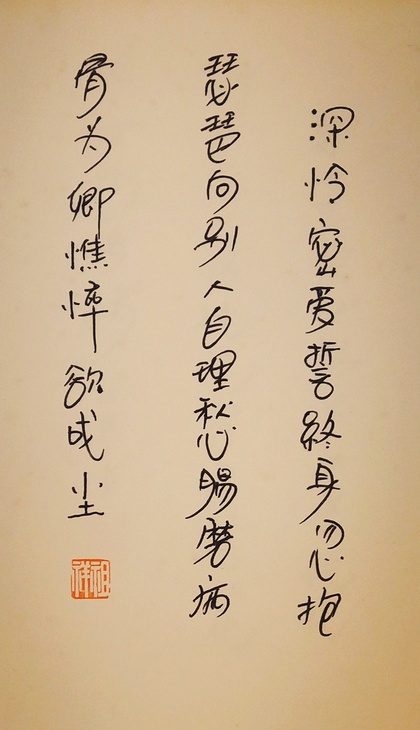 深怜密爱誓終身忽抱
琵琶向别人自理愁腸磨病
骨为卿憔悴欲成尘
祖祥